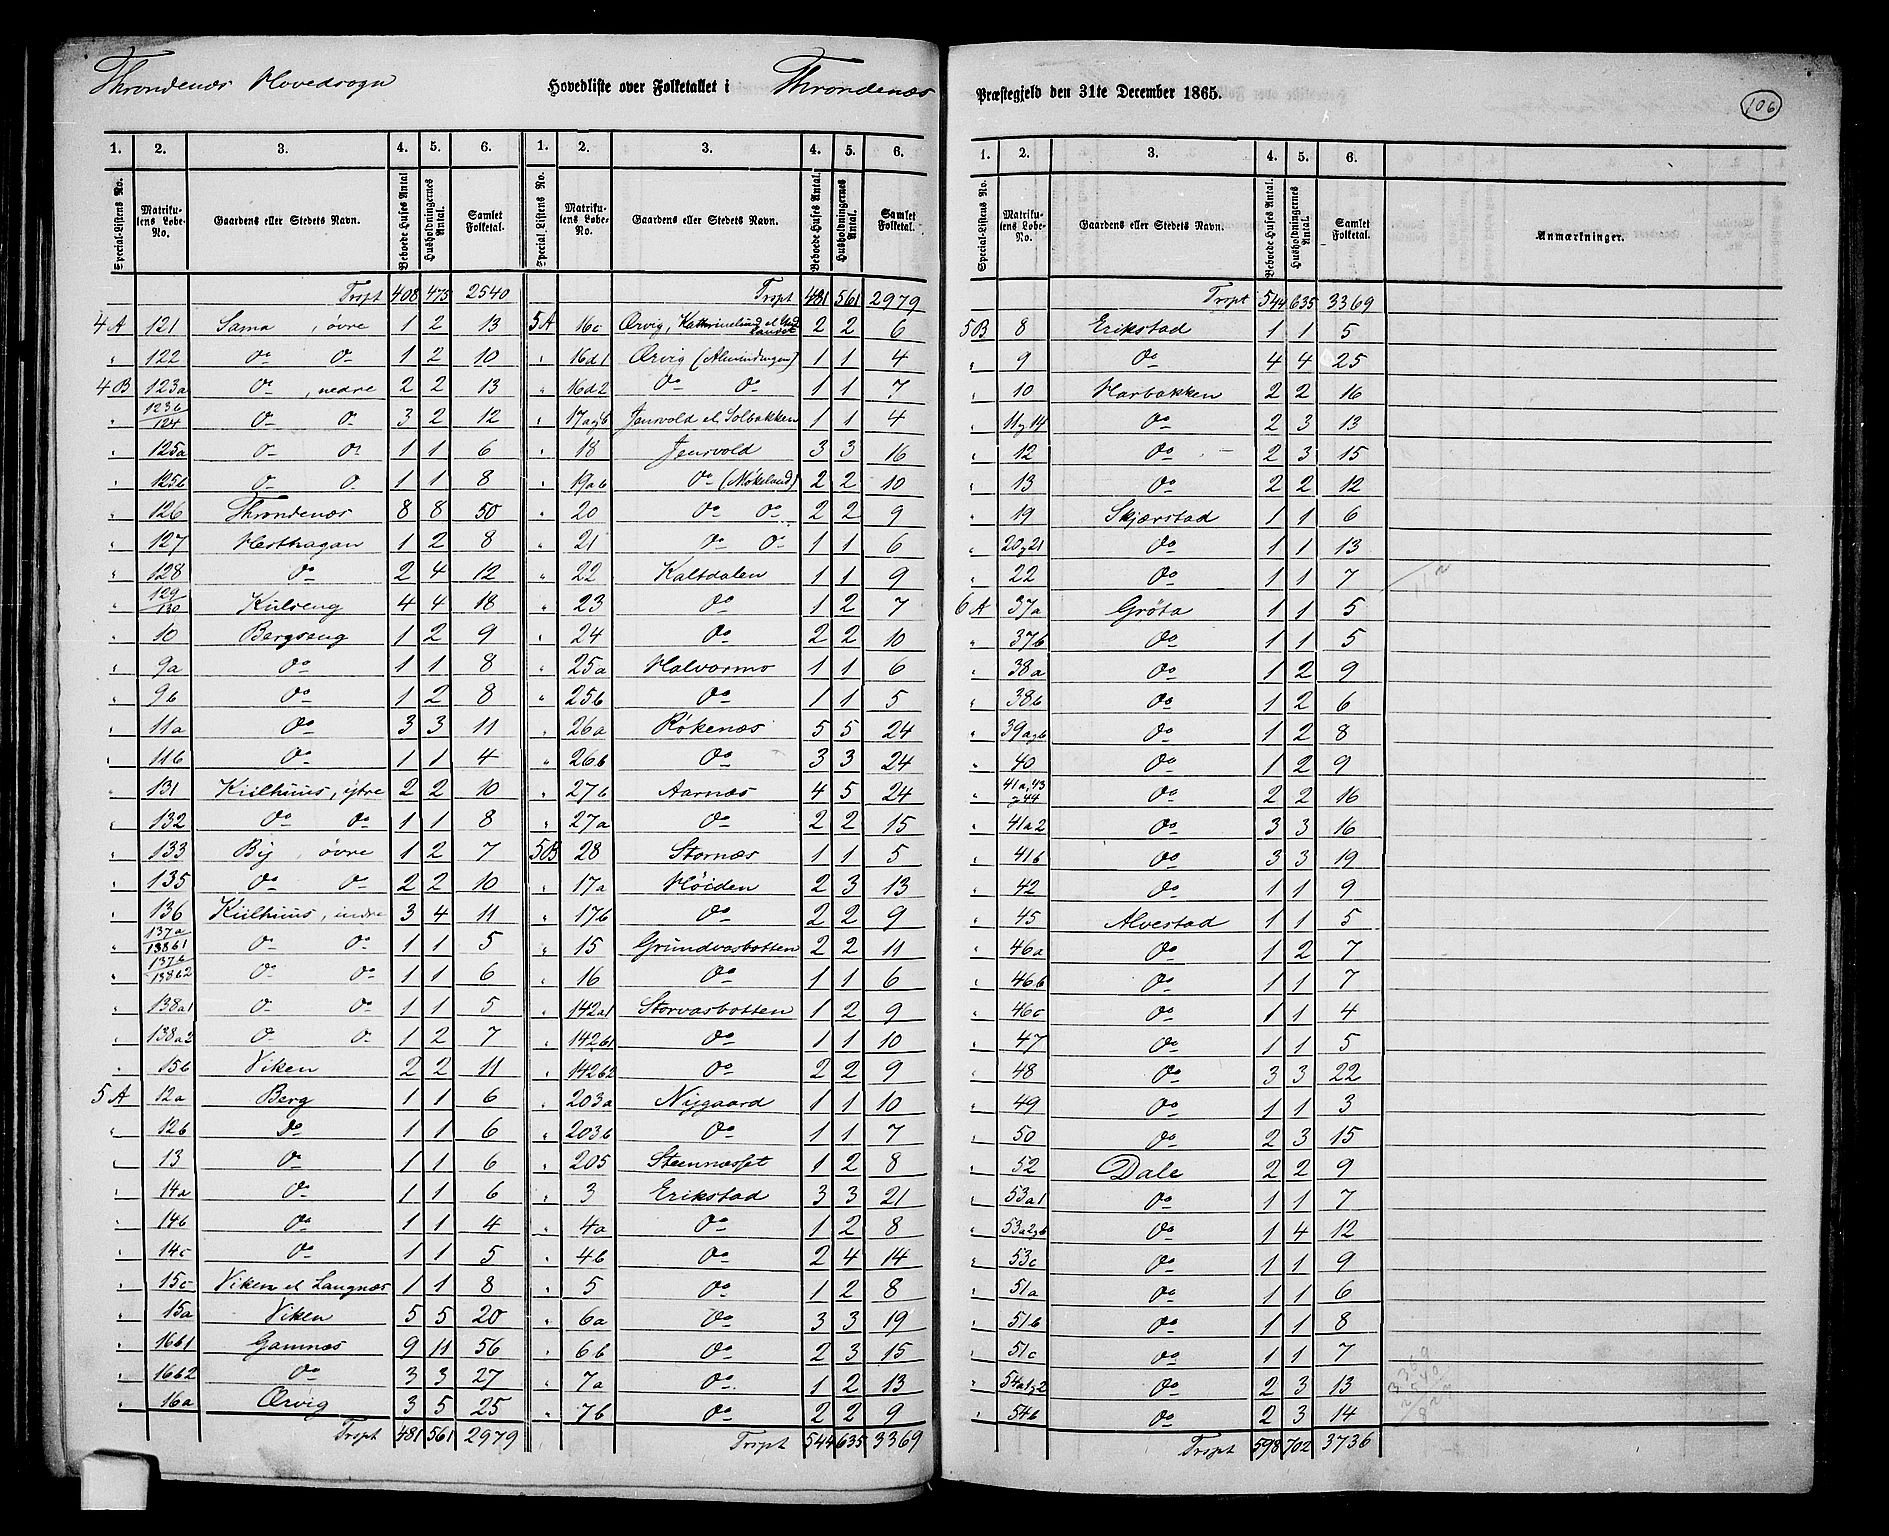 Throndenæs Hovedsogn Hovedliste over Folketallet i Throndenæs Præstegjeld den 31te December 1865. 106
1. 2. 3. 4. 5. 6.
Special-Listens No. Matrikulens Løbe-No. Gaardens eller Stedets Navn. Beboede Huses Antal Husholdningernes Antal. Samlet Folketal.
Trspt 408 475 2540
4A 121 Sama, øvre 1 2 13
" 122 Do Do 1 2 10
4B 123a Do, nedre 2 2 13
" 123b/124 Do Do 3 2 12
" 125a Do Do 1 1 6
" 125b Do Do 1 1 8
" 126 Throndenæs 8 8 50
" 127 Hesthagan 1 2 8
" 128 Do 2 4 12
" 129/130 Kulseng 4 4 18
" 10 Bergseng 1 2 9
" 9a Do 1 1 8
" 9b Do 1 2 8
" 11a Do 3 3 11
" 11b Do 1 1 4
" 131 Kiilhuus, ytre 2 2 10
" 132 Do Do 1 1 8
" 133 By, øvre 1 2 7
" 135 Do Do 2 2 10
" 136 Kiilhuus, indre 3 4 11
" 137a/138b1 Do Do 1 1 5
" 137b/138b2 Do Do 1 1 6
" 138a1 Do Do 1 1 5
" 138a2 Do Do 1 2 7
" 15b Viken 2 2 11
5A 12a Berg 1 1 6
" 12b Do 1 1 6
" 13 Do 1 1 6
" 14a Do 1 1 6
" 14b Do 1 1 4
" 14c Do 1 1 5
" 15c Viken el Langnæs 1 1 8
" 15a Viken 5 5 20
" 16b1 Gamnæs 9 11 56
" 16b2 Do 3 3 27
" 16a Ørvig 3 5 25
Trspt 481 561 2979
1. 2. 3. 4. 5. 6.
Special-Listens No. Matrikulens Løbe-No. Gaardens eller Stedets Navn. Beboede Huses Antal. Husholdningernes Antal. Samlet Folketal.
Trspt 481 561 2979
5A 16c Ørvig, Kathrinelund el 2 2 6
" 16d1 Ørvig (Almindingen) 1 1 4
" 16d2 Do Do 1 1 7
" 17agb Jensvold el Solbakken 1 1 4
" 18 Jensvold 3 3 16
" 19ab Do (Møkeland) 2 2 10
" 20 Do Do 2 2 9
" 21 Do Do 1 1 6
" 22 Kaltdalen 1 1 9
" 23 Do 1 2 7
" 24 Do 2 2 10
" 25a Halvarmo 1 1 6
" 25b Do 1 1 5
" 26a Røkenæs 5 5 24
" 26b Do 3 3 24
" 27b Aarnæs 4 5 24
" 27a Do 2 2 15
5B 28 Stornæs 1 1 5
" 17a Høiden 2 3 13
" 17b Do 2 2 9
" 15 Grundvasbotten 2 2 11
" 16 Do 1 1 6
" 142a1 Storvasbotten 1 2 9
" 142b1 Do 1 1 10
" 142b2 Do 2 2 9
" 203a Nygaard 1 1 10
" 203b Do 1 1 7
" 205 Steennæsset 1 2 8
" 3 Erikstad 3 3 21
" 4a Do 1 2 8
" 4b Do 2 4 14
" 5 Do 1 2 8
" 6a Do 3 3 19
" 6b Do 2 3 15
" 7a Do 1 2 13
" 7b Do 2 2 9
Trspt 544 635 3369
1. 2. 3. 4. 5. 6.
Special-Listens No. Matrikulens Løbe-No. Gaardens eller Stedets Navn. Beboede Huses Antal. Husholdningernes Antal. Samlet Folketal. Anmærkninger.
Trspt 544 635 3369
5B 8 Erikstad 1 1 5
" 9 Do 4 4 25
" 10 Harbakken 2 2 16
" 11g14 Do 2 3 13
" 12 Do 2 3 15
" 13 Do 2 2 12
" 19 Skjærstad 1 1 6
" 20g21 Do 1 1 13
" 22 Do 1 1 7
6A 37a Grøta 1 1 5
" 37b Do 1 1 5
" 38a Do 1 2 9
" 38b Do 1 2 6
" 39agb Do 1 2 8
" 40 Do 1 2 9
" 41a,43 g44 Do 2 2 16
" 41a2 Do 3 3 16
" 41b Do 3 3 19
" 42 Do 1 1 9
" 45 Alvestad 1 1 5
" 46a Do 1 2 7
" 46b Do 1 1 7
" 46c Do 1 1 4
" 47 Do 1 1 5
" 48 Do 3 3 22
" 49 Do 1 1 3
" 50 Do 2 3 15
" 52 Dale 2 2 9
" 53a1 Do 1 1 7
" 53a2gb Do 1 4 12
" 53c Do 1 1 9
" 51a Do 1 1 6
" 51b Do 1 1 8
" 51c Do 1 1 7
" 54a1g2 Do 2 3 13
" 54b Do 2 3 14
Trspt 598 702 3736
3369
2540